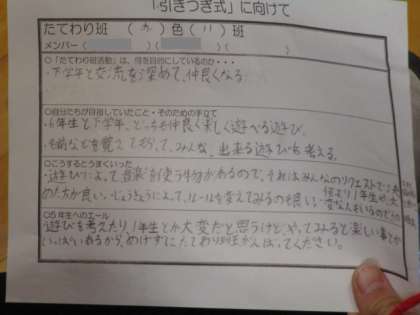 「引きつぎ式」に向けて
たてわり班 ( 赤 ) 色 ( 11 ) 班
メンバー ( ) ( ) ( )
○「たてわり班活動」は、何を目的にしているのか・・・
・下学年と交流を深めて、仲良くなる
○自分たちが目指していたこと・そのための手立て
・6年生と下学年、どっちも仲良く楽しく遊べる遊び。
・名前などを覚えておいて、みんな、出来る遊びを考える。
○こうするとうまくいった
・遊びによって音楽を使う物があるので、それはみんなのリクエストでは
の方が良い。じょうきょうによって、ルールを変えてみるのも良い
○5年生へのエール
遊びを考えたり、1年生とか大変だと思うけど、やってみると楽しい事とか
いっぱいあるから、めげずにたてわり班がんばってください。